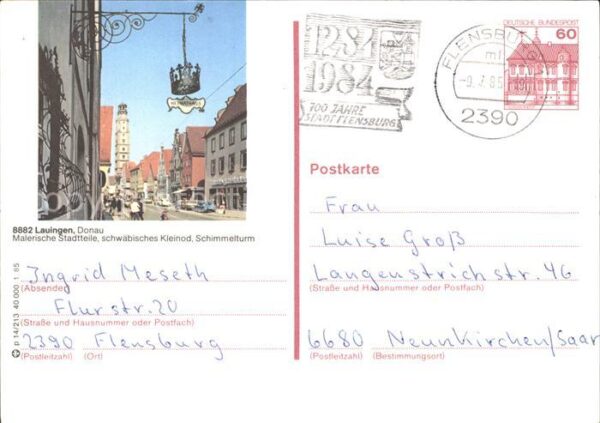 8882 Lauingen, Donau
Malerische Stadtteile, schwäbisches Kleinod, Schimmelturm
Ingrid Meseth
(Absender)
Flurstr. 20
(Straße und Hausnummer oder Postfach)
2390 Flensburg
(Postleitzahl) (Ort)
p 14/213 40 000 1 85
1284
1984
700 JAHRE
STADT FLENSBURG
FLENSBURG
2390
DEUTSCHE BUNDESPOST
60
Postkarte
Frau
Luise Groß
Langenstrichstr. 46
(Straße und Hausnummer oder Postfach)
6680 Neunkirchen/Saar
(Postleitzahl) (Bestimmungsort)